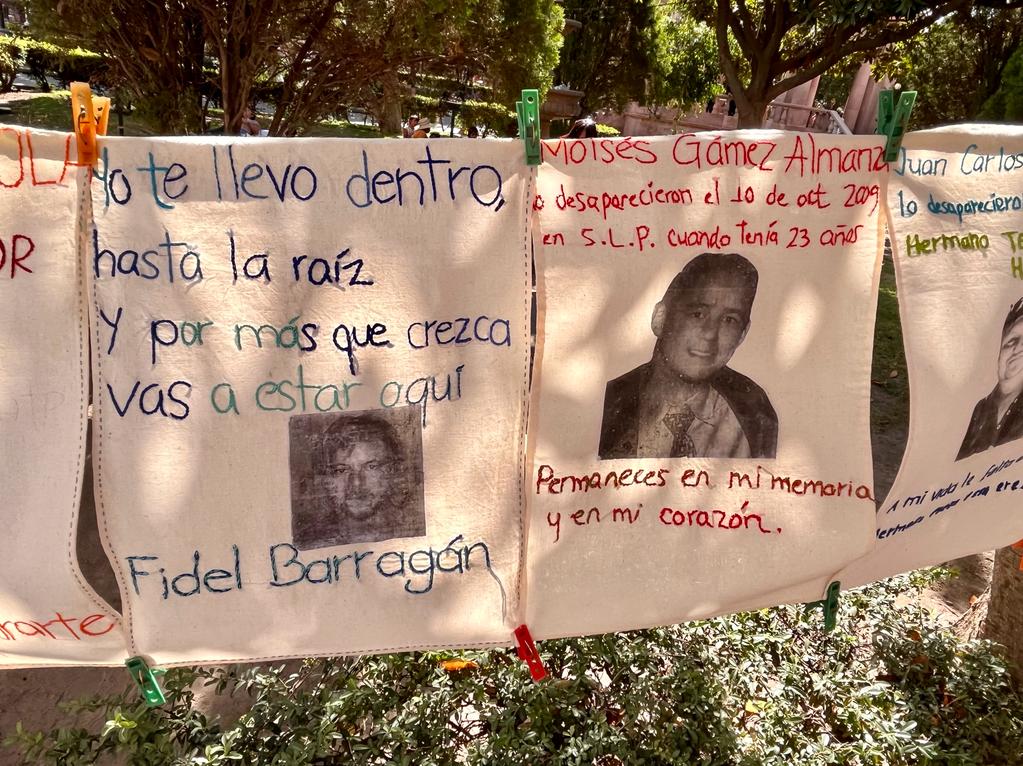 OR
Yo te llevo dentro,
hasta la raíz
Y por más que crezca
vas a estar aquí
Fidel Barragán
Moisés Gámez Almanza
lo desaparecieron el 10 de oct 2009
en S.L.P. cuando tenía 23 años
Permaneces en mi memoria
y en mi corazón.
Juan Carlos
lo desapareciero
Hermano
A mi vida le falta